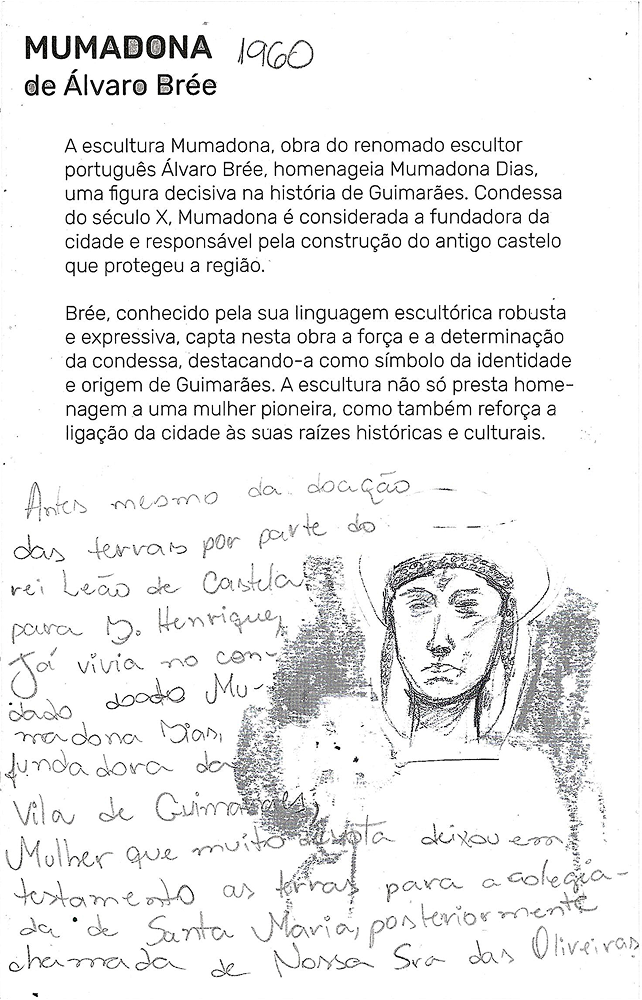 MUMADONA 1960
de Álvaro Brée
A escultura Mumadona, obra do renomado escultor
português Álvaro Brée, homenageia Mumadona Dias,
uma figura decisiva na história de Guimarães. Condessa
do século X, Mumadona é considerada a fundadora da
cidade e responsável pela construção do antigo castelo
que protegeu a região.
Brée, conhecido pela sua linguagem escultórica robusta
e expressiva, capta nesta obra a força e a determinação
da condessa, destacando-a como símbolo da identidade
e origem de Guimarães. A escultura não só presta home-
nagem a uma mulher pioneira, como também reforça a
ligação da cidade às suas raízes históricas e culturais.
Antes mesmo da doação
das terras por parte do
rei Leão de Castela,
para D. Henrique,
Já vivia no con-
dado Mu-
madona Dias,
fundadora da
Vila de Guimarães,
Mulher que muito devota deixou em
testamento as terras para a colegia-
da de Santa Maria, posteriormente
chamada de Nossa Sra das Oliveiras